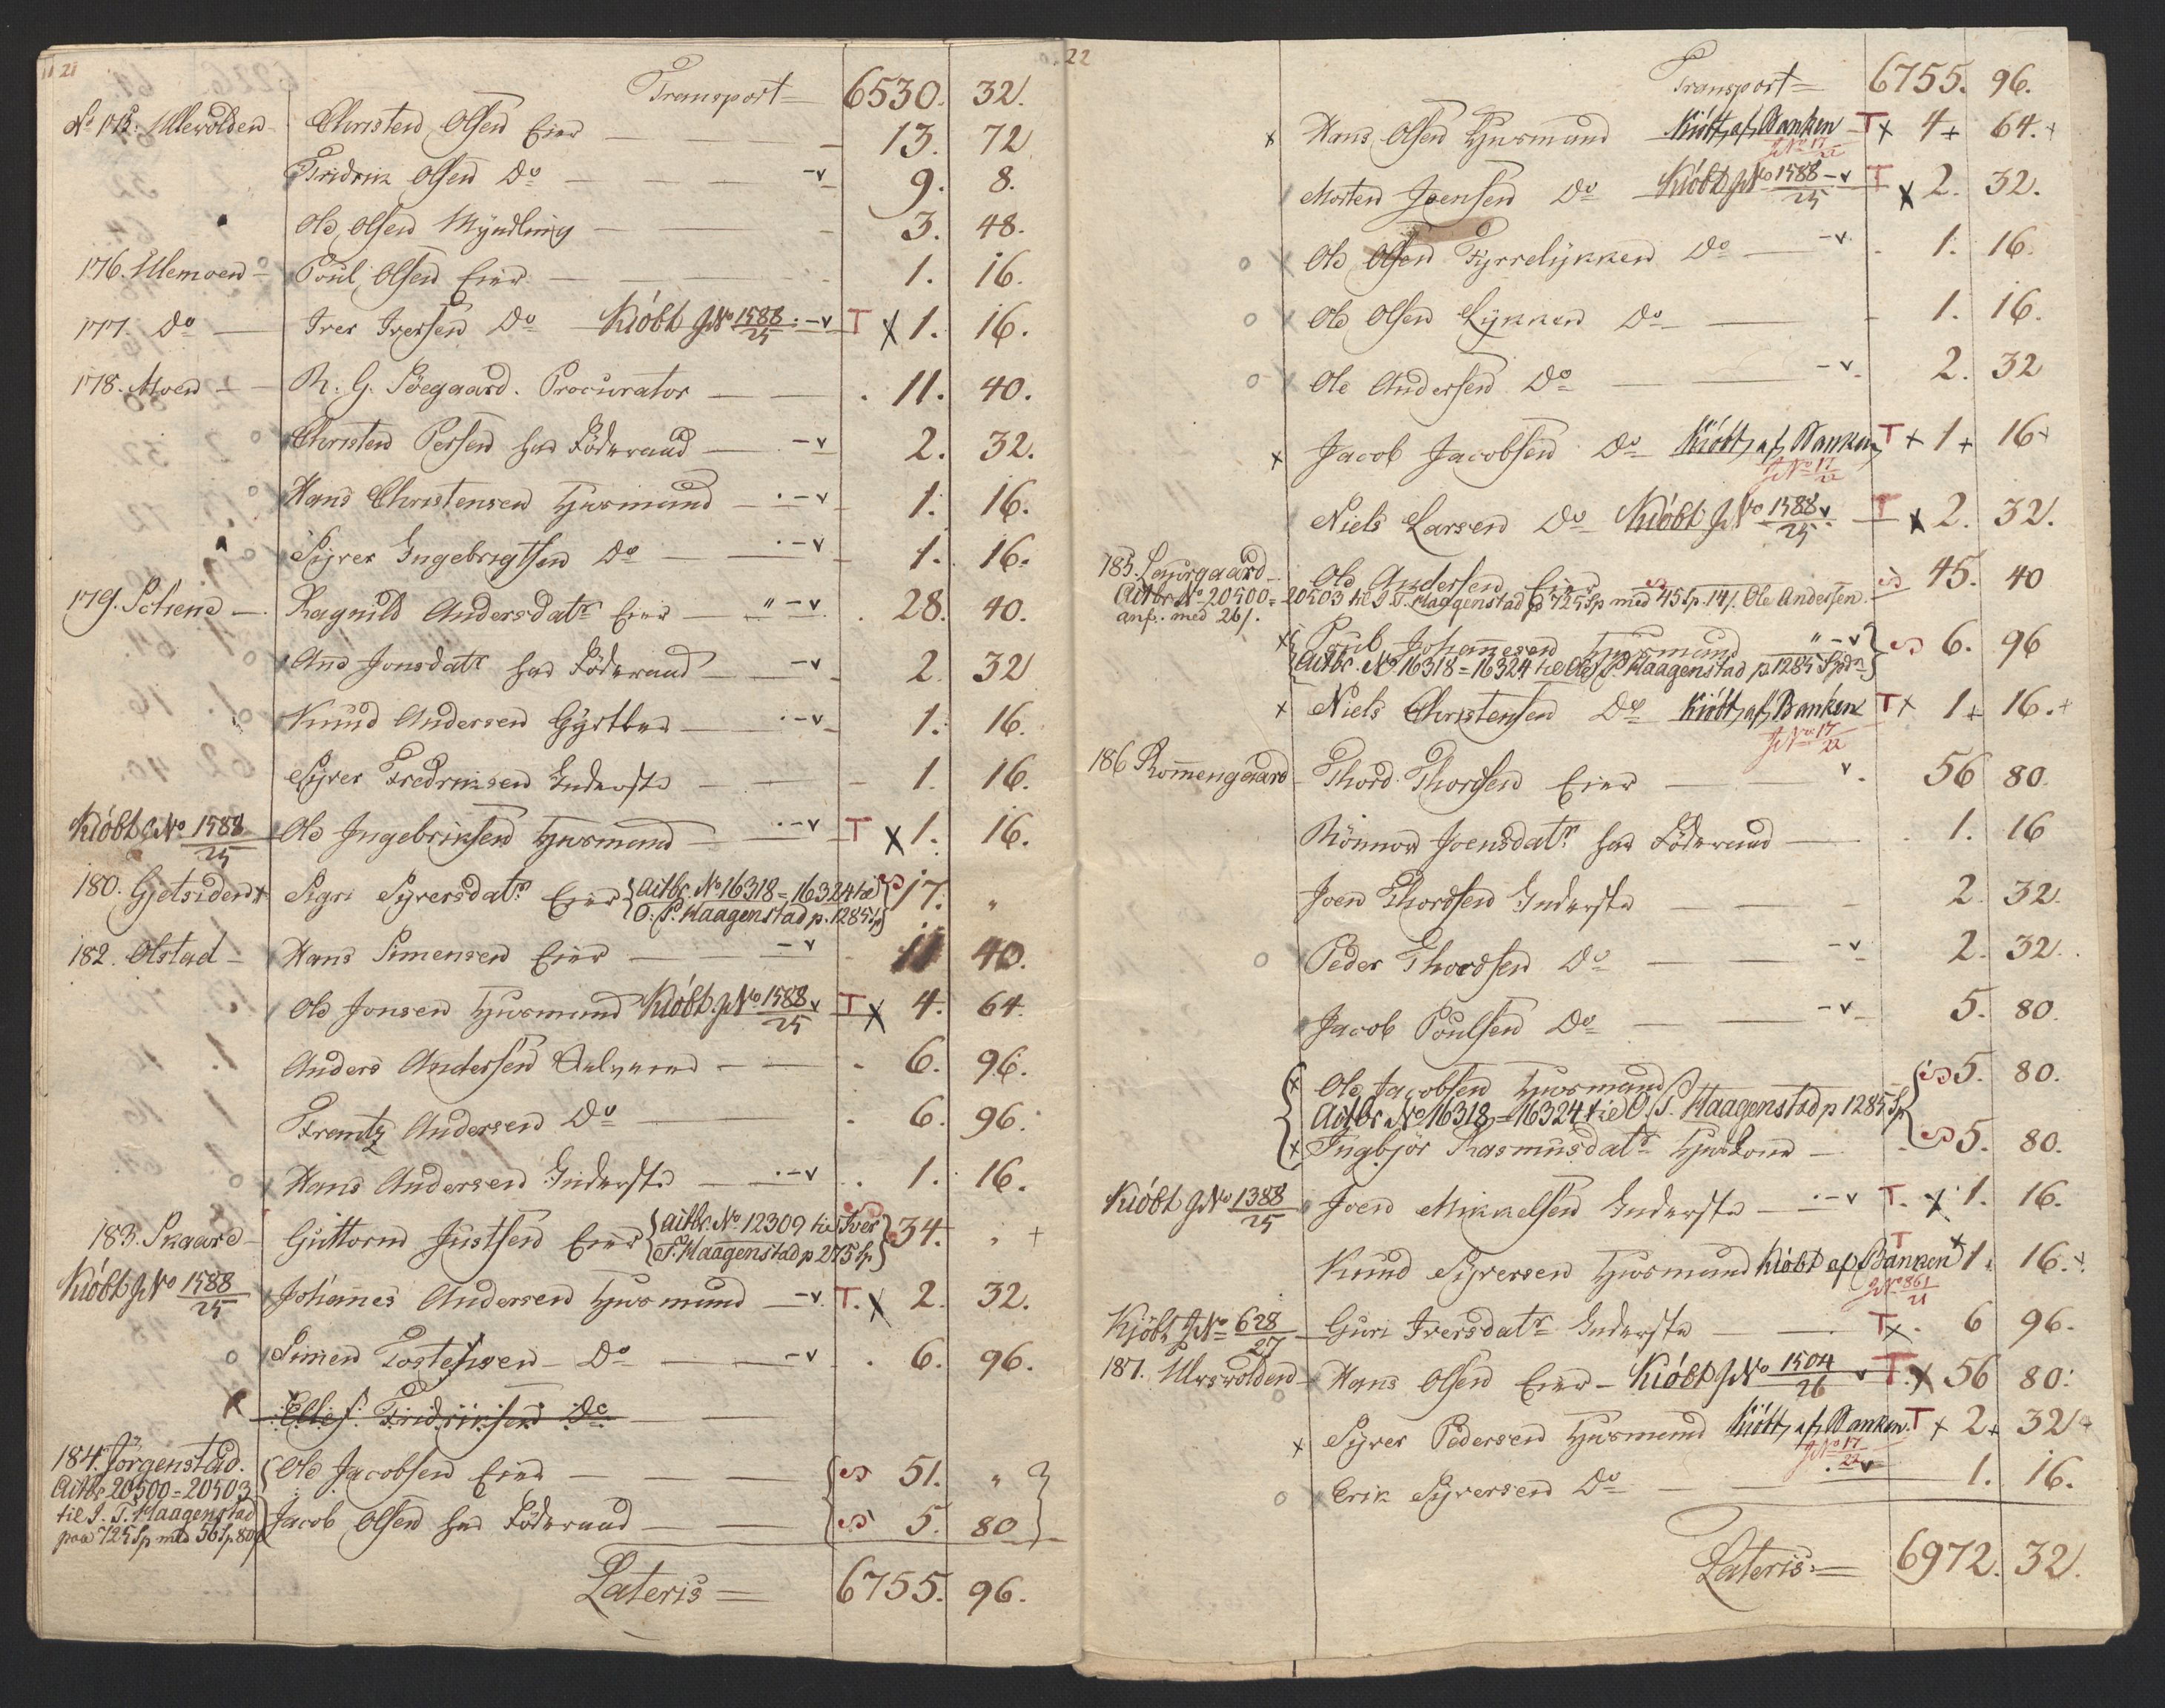 21
Transport = 6530. 32.
No 175. Ulewolden - Christen Olsen Eier - 13. 72
Fridrik Olsen Do - 9. 8.
Ole Olsen Myndling - 3. 48.
176. Ulemoen - Poul Olsen Eier - 1. 16.
177. Do - Iver Iversen Do Kióbt JNo 1588/25 T X 1. 16.
178. Moen - R. G. Söegaard. Procurator - 11. 40.
Christen Persen har Föderaad - 2. 32.
Hans Christensen Huusmand - 1. 16.
Syver Ingebrigtsen Do - 1. 16.
179. Schene - Ragnild Andersdatr Eier - 28. 40.
Ane Jonsdatr har Föderaad - 2. 32
Knud Andersen Gjestber - 1. 16.
Syver Fredriksen Inderste - 1. 16.
Kióbt JNo 1588/25 Ole Ingebriksen Huusmand - T X 1. 16.
180. Gjetsiden x Sigri Syversdatr Eier {Aitbr. No 16318 = 16324 til
O. P. Haagenstad p. 1285 Sp} 17. "
182. Olstad - Hans Simensen Eier - 11 40.
Ole Jonsen Huusmand Kióbt JNo 1588/25 T X 4. 64.
Anders Andersen Selveier - 6. 96.
Frantz Andersen Do - 6. 96.
Hans Andersen Inderste - 1. 16.
183. Skaare - Guttorm Justsen Eier {Aitbr. No 12309 til Iver
P. Haagenstad p 275 Sp} 34. " +
Kióbt JNo 1588/25 Johannes Andersen Huusmand - T. X 2. 32.
Simen Tostensen - Do - 6. 96.
Ellef Fridriksen Do
184. Jörgenstad. Ole Jacobsen Eier - 51. "
Aitbr 20500 = 20503
til I. T. Haagenstad Jacob Olsen har Föderaad - 5. 80
paa 725 Sp med 56 Sp 80
Lateris = 6755. 96.
22
Transport = 6755. 96.
x Hans Olsen Huusmand Kióbt af Banken T x 4 + 64. +
JNo 17/22
Morten Joensen Do Kióbt JNo 1588/25 T X 2. 32.
o Ole Olsen Fyrrelykken Do - 1. 16.
o Ole Olsen Lykken Do - 1. 16.
o Ole Andersen Do - 2. 32
x Jacob Jacobsen Do Kióbt af Banken T x 1 + 16 +
JNo 17/22
Niels Larsen Do Kióbt JNo 1588/25 T X 2. 32.
185. Laurgaard - Ole Andersen Eier 45. 40
Aitbr No 20500 = 20503 til I. T. Haagenstad p 725 Sp med 45 Sp. 14/. Ole Andersen
anf. med 26/.
x Poul Johannesen Huusmand 6. 96
{Aitbr. No 16318 = 16324 til Ole P. Haagenstad p 1285 Spd}
x Niels Christensen Do Kióbt af Banken T x 1 + 16. +
JNo 17/22
186 Rommengaard - Thord Thordsen Eier - 56 80.
Rönnow Joensdatr har Föderaad - 1. 16
Joen Thordsen Inderste - 2. 32.
o Peder Thordsen Do - 2. 32.
Jacob Poulsen Do - 5. 80.
x Ole Jacobsen Huusmand 5. 80.
Aitbr No 16318 = 16324 til O. P. Haagenstad p 1285 Sp
x Ingbjör Rasmusdatr Huuskone - 5. 80.
Kióbt JNo 1388/25 Joen Mikkelsen Inderste - T. X 1. 16.
Knud Syversen Huusmand Kióbt af Banken T x 1. 16. +
JNo 861/21
Kjöbt JNo 628/27 - Guri Iversdatr Inderste - T X. 6 96.
187. Ulvswolden - Hans Olsen Eier - Kióbt JNo 1504/26 T. X 56 80.
x Syver Pedersen Huusmand Kióbt af Banken. T x 2 + 32 +
JNo 17/22
o Erik Syversen Do - 1. 16.
Lateris = 6972. 32.